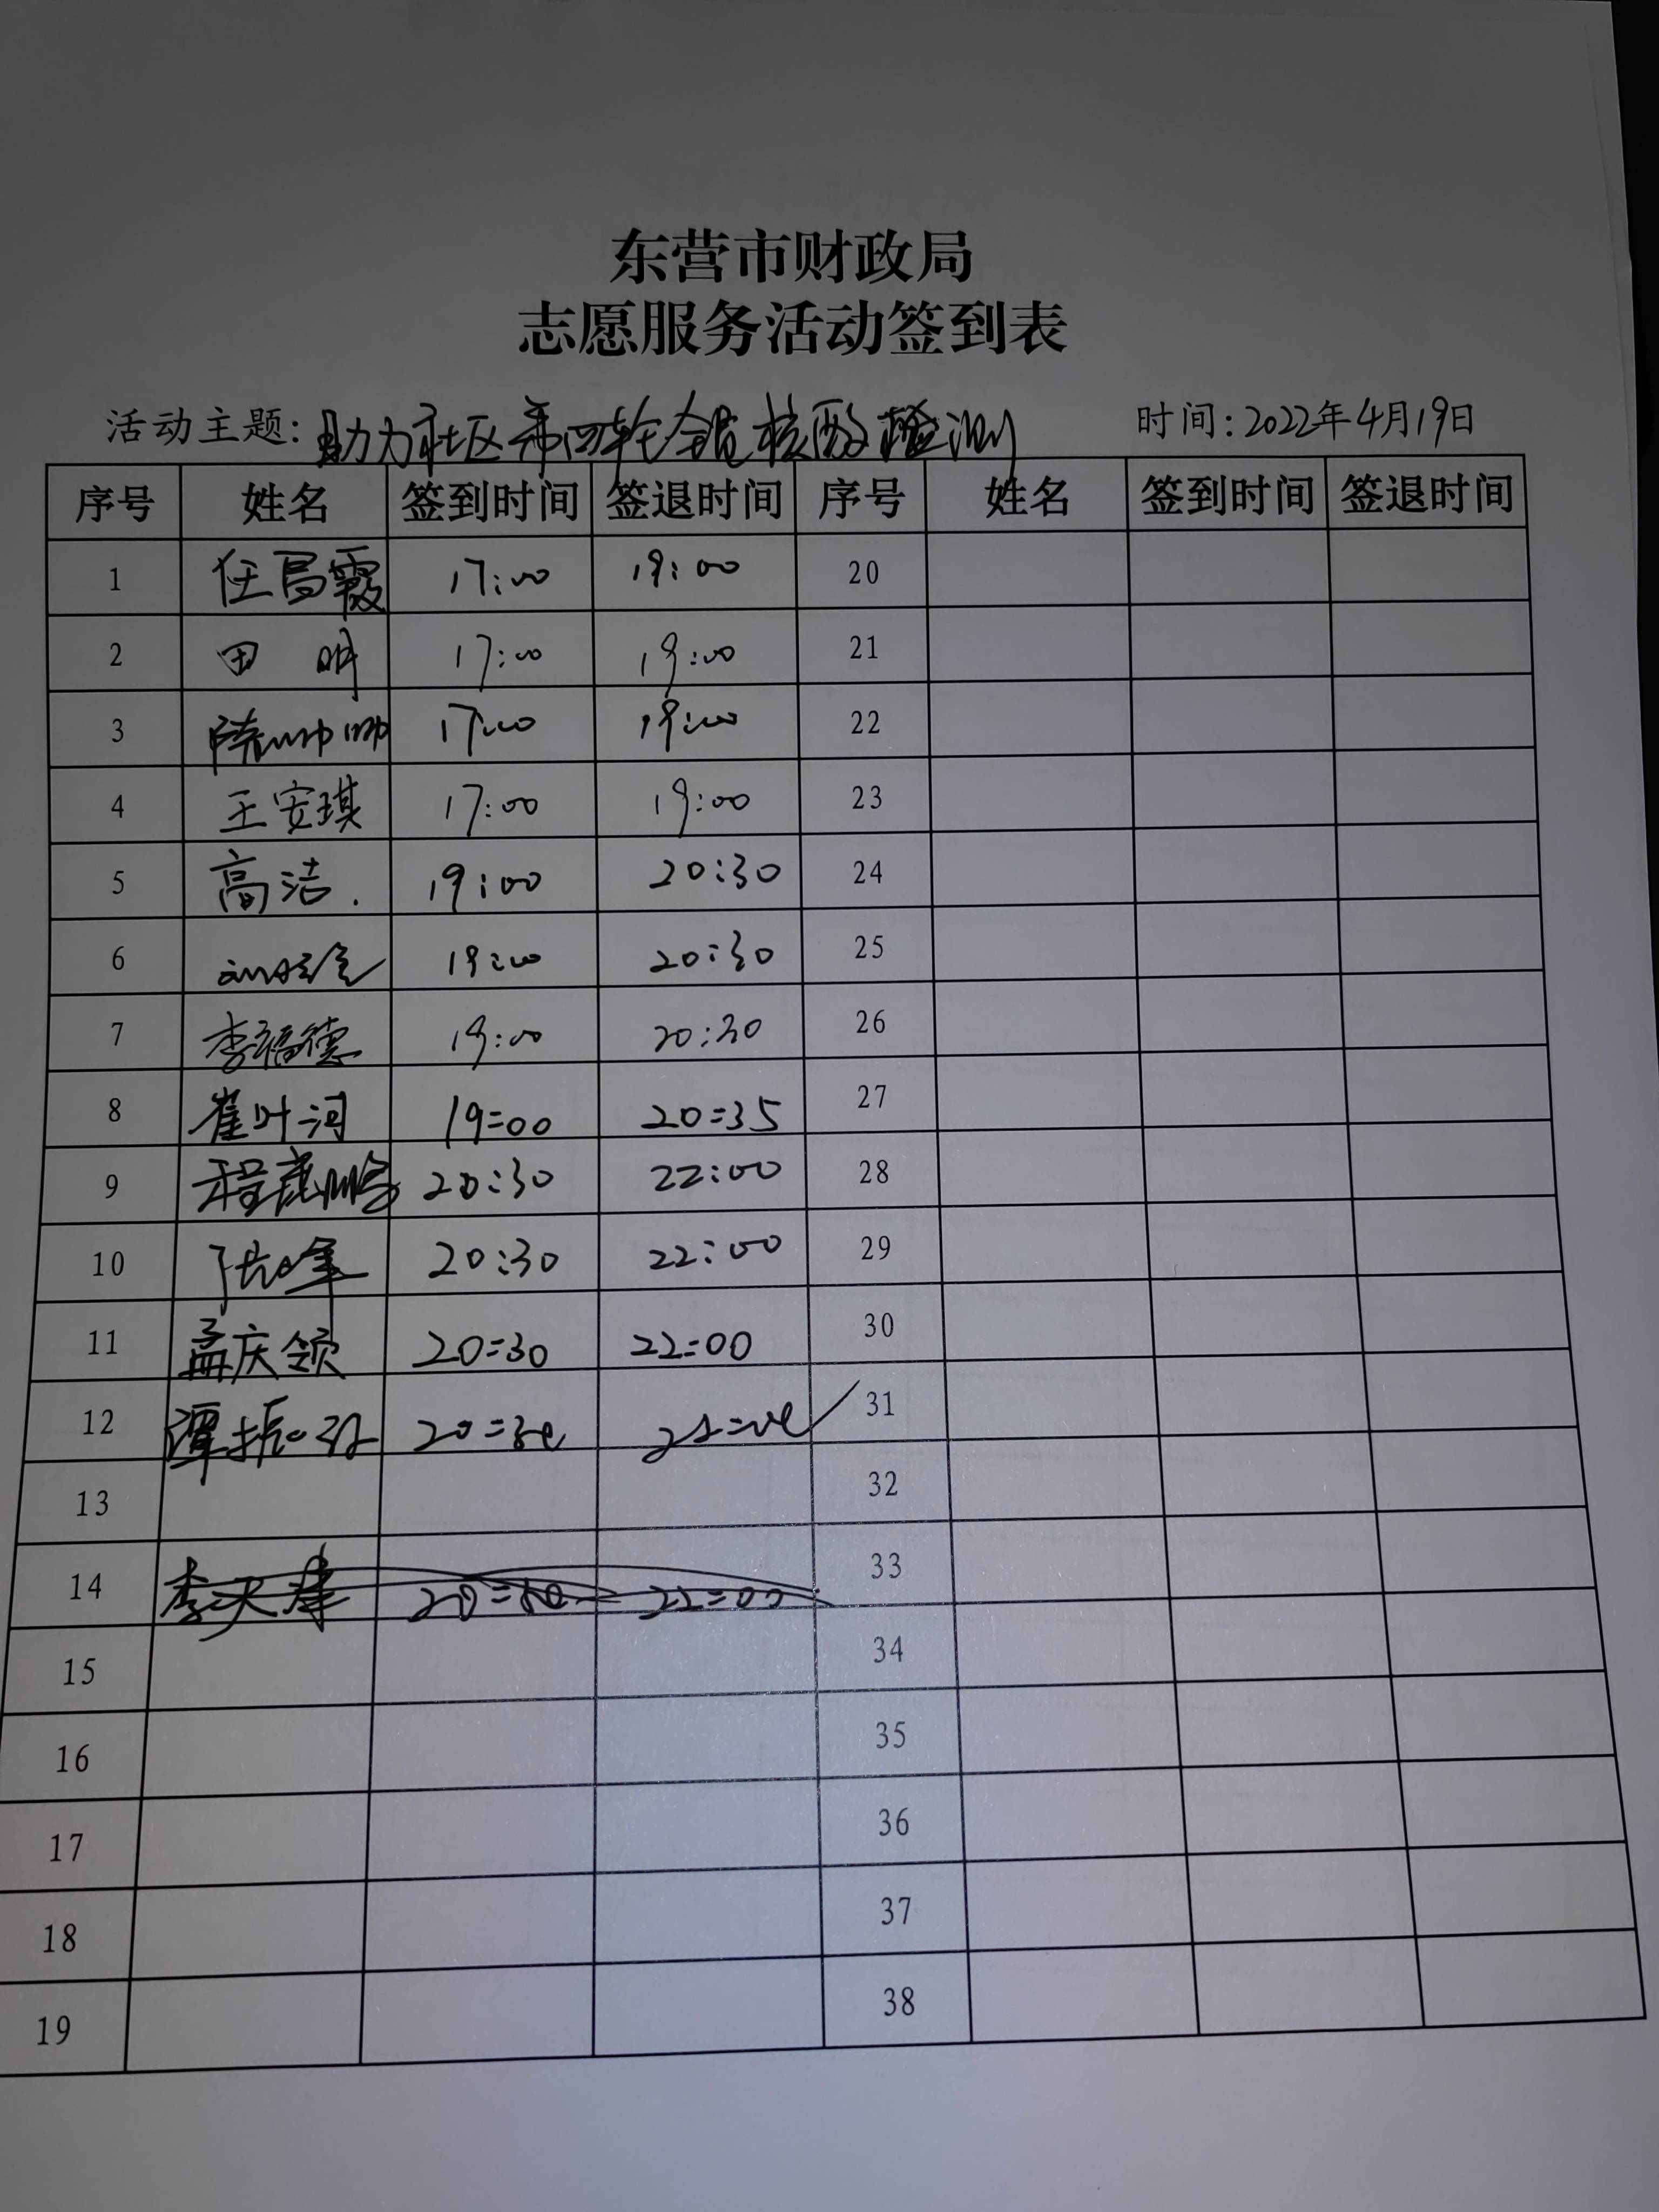 东营市财政局
志愿服务活动签到表
活动主题:助力社区第四轮全员核酸检测 时间:2022年4月19日
序号 姓名 签到时间 签退时间 序号 姓名 签到时间 签退时间
1 任昌霞 17:00 19:00 20
2 田明 17:00 19:00 21
3 陈帅帅 17:00 19:00 22
4 王安琪 17:00 19:00 23
5 高洁. 19:00 20:30 24
6 19:00 20:30 25
7 李福德 19:00 20:30 26
8 崔叶河 19:00 20:35 27
9 程鹏 20:30 22:00 28
10 张峰 20:30 22:00 29
11 孟庆领 20:30 22:00 30
12 谭振 20:30 22:00 31
13 32
14 李天津 20:30 22:00 33
15 34
16 35
17 36
18 37
19 38